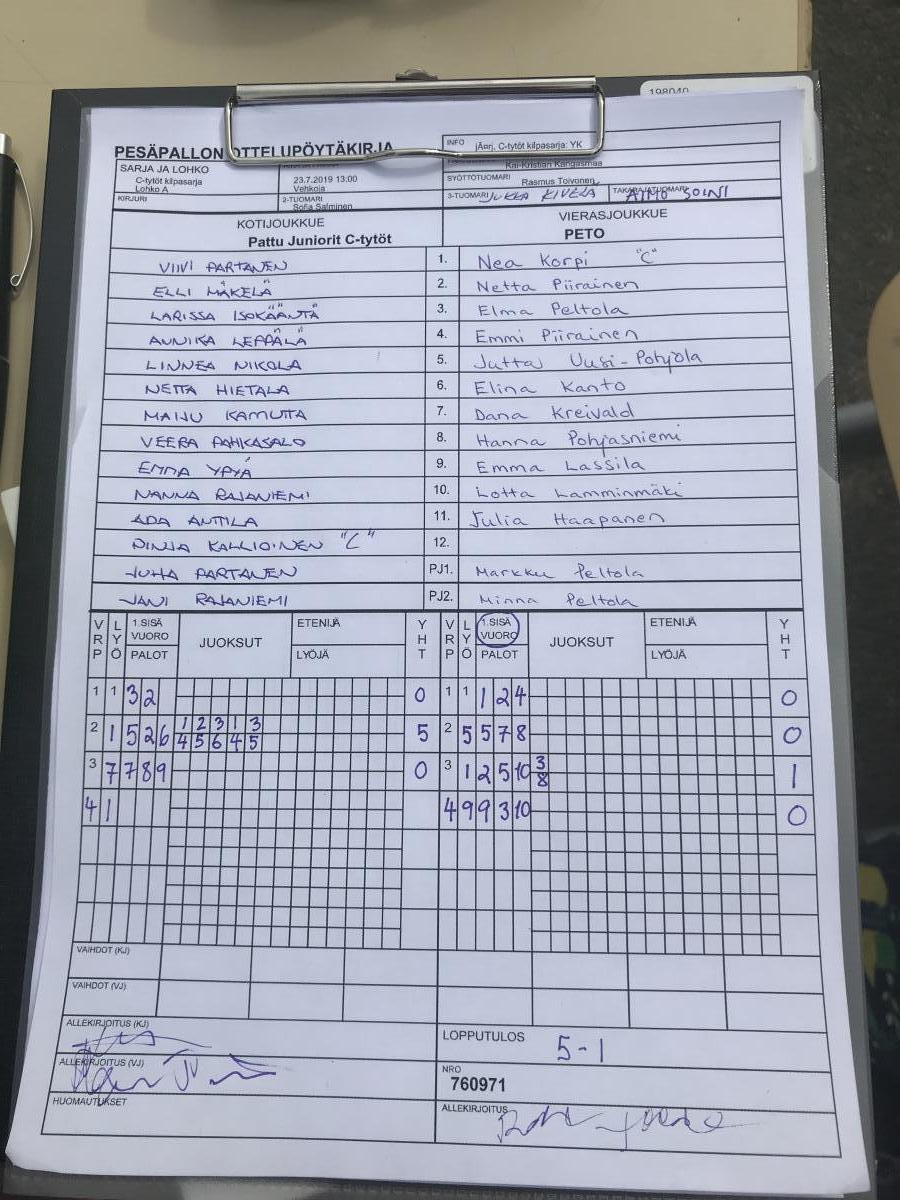 198040
PESÄPALLON OTTELUPÖYTÄKIRJA
INFO jÄnrj, C-tytöt kilpasarja: YK
SARJA JA LOHKO
C-tytöt kilpasarja
Lohko A
23.7.2019 13:00
Vehkoja
Kai-Kristian Kangasmaa
SYÖTTÖTUOMARI
Rasmus Toivonen
KIRJURI
2-TUOMARI
Sofia Salminen
3-TUOMARI JUKKA KIVELÄ
TAKARAJATUOMARI AIMO SOINI
KOTIJOUKKUE
Pattu Juniorit C-tytöt
VIERASJOUKKUE
PETO
VIIVI PARTANEN 1. Nea Korpi "C"
ELLI MÄKELÄ 2. Netta Piirainen
LARISSA ISOKÄÄNTÄ 3. Elma Peltola
ANNIKA LEPPÄLÄ 4. Emmi Piirainen
LINNEA NIKOLA 5. Jutta Uusi-Pohjola
NETTA HIETALA 6. Elina Kanto
MAIJU KAMUTTA 7. Dana Kreivald
VEERA PAHKASALO 8. Hanna Pohjasniemi
EMMA YPYÄ 9. Emma Lassila
NANNA RAJANIEMI 10. Lotta Lamminmäki
ADA ANTTILA 11. Julia Haapanen
PINJA KALLIOINEN "C" 12.
JUHA PARTANEN PJ1. Markku Peltola
JANI RAJANIEMI PJ2. Minna Peltola
VRP LYÖ 1.SISÄ VUORO PALOT JUOKSUT ETENIJÄ LYÖJÄ YHT VRP LYÖ 1.SISÄ VUORO PALOT JUOKSUT ETENIJÄ LYÖJÄ YHT
1 1 3 2 0 1 1 1 2 4 0
1 2 3 1 3
2 1 5 2 6 4 5 6 4 5 5 2 5 5 7 8 0
3 7 7 8 9 0 3 1 2 5 10 3 8 1
4 1 4 9 9 3 10 0
VAIHDOT (KJ)
VAIHDOT (VJ)
ALLEKIRJOITUS (KJ)
LOPPUTULOS 5-1
ALLEKIRJOITUS (VJ)
NRO
760971
HUOMAUTUKSET
ALLEKIRJOITUS